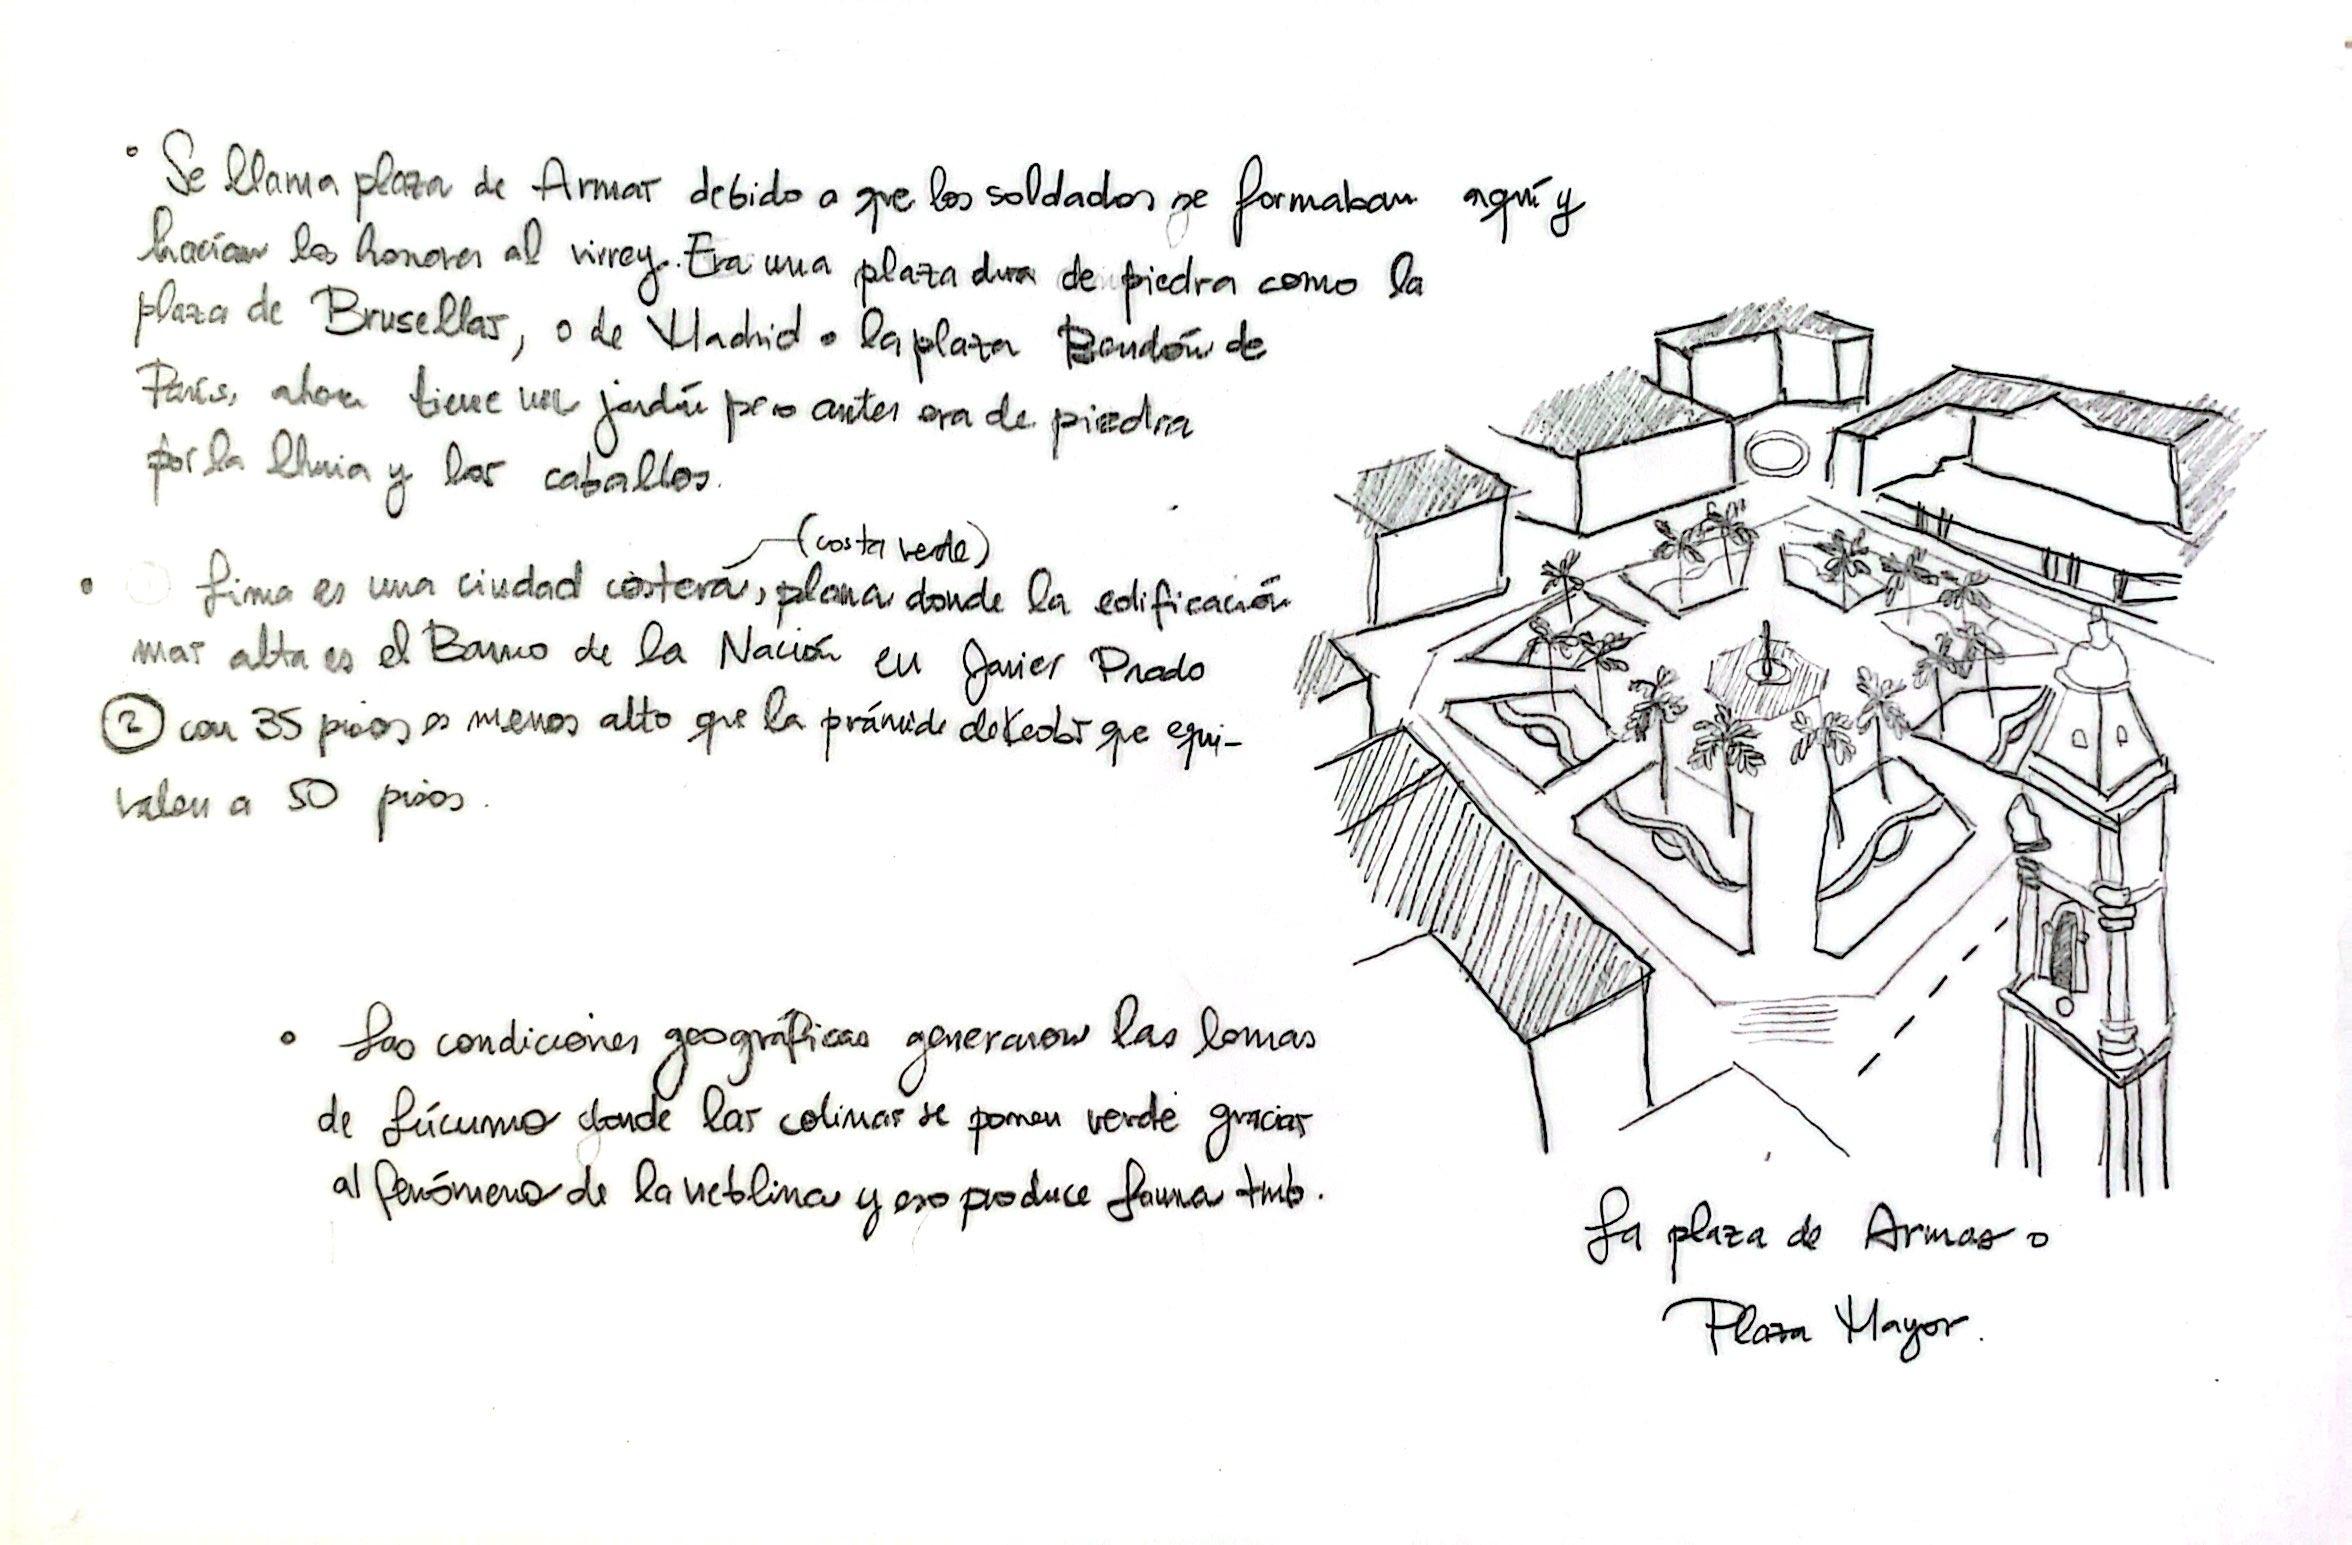 Se llama plaza de Armas debido a que los soldados se formaban aquí y
hacían los honores al virrey. Era una plaza dura de piedra como la
plaza de Brusellas, o de Madrid o la plaza Bendón de
París, ahora tiene un jardín pero antes era de piedra
por la lluvia y los caballos.
(costa verde)
Lima es una ciudad costera, plana donde la edificación
mas alta es el Banco de la Nación en Javier Prado
2 con 35 pisos es menos alto que la prámide de Keobs que equi-
valen a 50 pisos.
Las condiciones geográficas generaron las lomas
de Lúcumo donde las colinas se ponen verde gracias
al fenómeno de la neblina y eso produce fauna tmb.
La plaza de Armas o
Plaza Mayor.